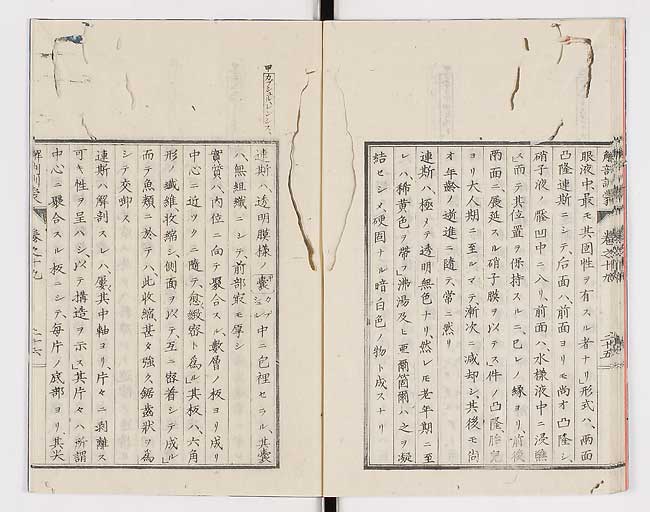 眼液中、最モ共固性ヲ有スル者ナリ」形式ハ、両面
凸隆連斯ニシテ、后面ハ、前面ヨリモ尚オ凸隆シ、
硝子液ノ凹中ニ入リ、前面ハ水様液中ニ浸
ス」而テ其位置ヲ保持スルニ、己レノ縁ヨリ、前後
両面ニ展延スル硝子膜ヲ以テス」件ノ凸隆胎児
ヨリ大人期ニ至ルマテ漸次ニ減却シ、其後モ尚
オ年齢ノ逝進ニ随テ、常ニ然リ
連斯ハ、極メテ透明無色ナリ、然レモ老年期ニ至
レハ稀黄色ヲ帯フ」沸湯及ヒ亜爾箇爾ハ、之ヲ凝
結セシメ、硬固ナル暗白色ノ物ト成スナリ
解剖訓蒙
巻之十九
二十五
甲カプシュルレンシス
連斯ハ、透明膜様ノ嚢カプシュル中ニ包裡セラル、其嚢
ハ、無組織ニシテ、前部寂モ厚シ
實質ハ、内位ニ向テ聚合スル数層ノ板ヨリ成リ
中心ニ近ツクニ随テ、愈緻密ト為ル」其板ハ、六角
形ノ繊維收縮シ、側面ヲ以テ、互ニ密着シテ成ル」
而テ魚類ニ於テハ、此收縮甚タ強ク、鋸齒状ヲ為
シテ交啣ス
連斯ハ解剖スレハ、屡其中軸ヨリ、片々ニ剥離ス
可キ性ヲ呈ハシ、以テ構造ヲ示ス」其片々ハ所謂
中心ニ聚合スル板ニシテ、毎片ノ底部ヨリ、其尖
解剖訓蒙
巻之十九
二十六